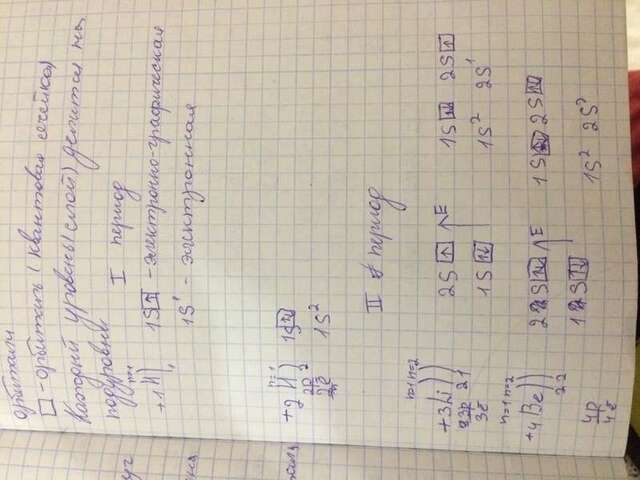 орбитали
□ - орбиталь (квантовая ячейка)
Каждый уровень (слой) делится на
подуровни
I период
n=1
+1 H) 1S[↑] - электронно-графическая
1
1S¹ - электронная
n=1
+2 ) 1S[↑↓]
2
1S²
II период
n=1 n=2
+3 Li)) 2S[↑] ↑E 1S[↑↓] 2S[↑]
2 1
3e 1S[↑↓] 1S² 2S¹
n=1 n=2
+4 Be)) 2S[↑↓] ↑E 1S[↑↓] 2S[↑↓]
2 2
4p 1S[↑↓] 1S² 2S²
4e